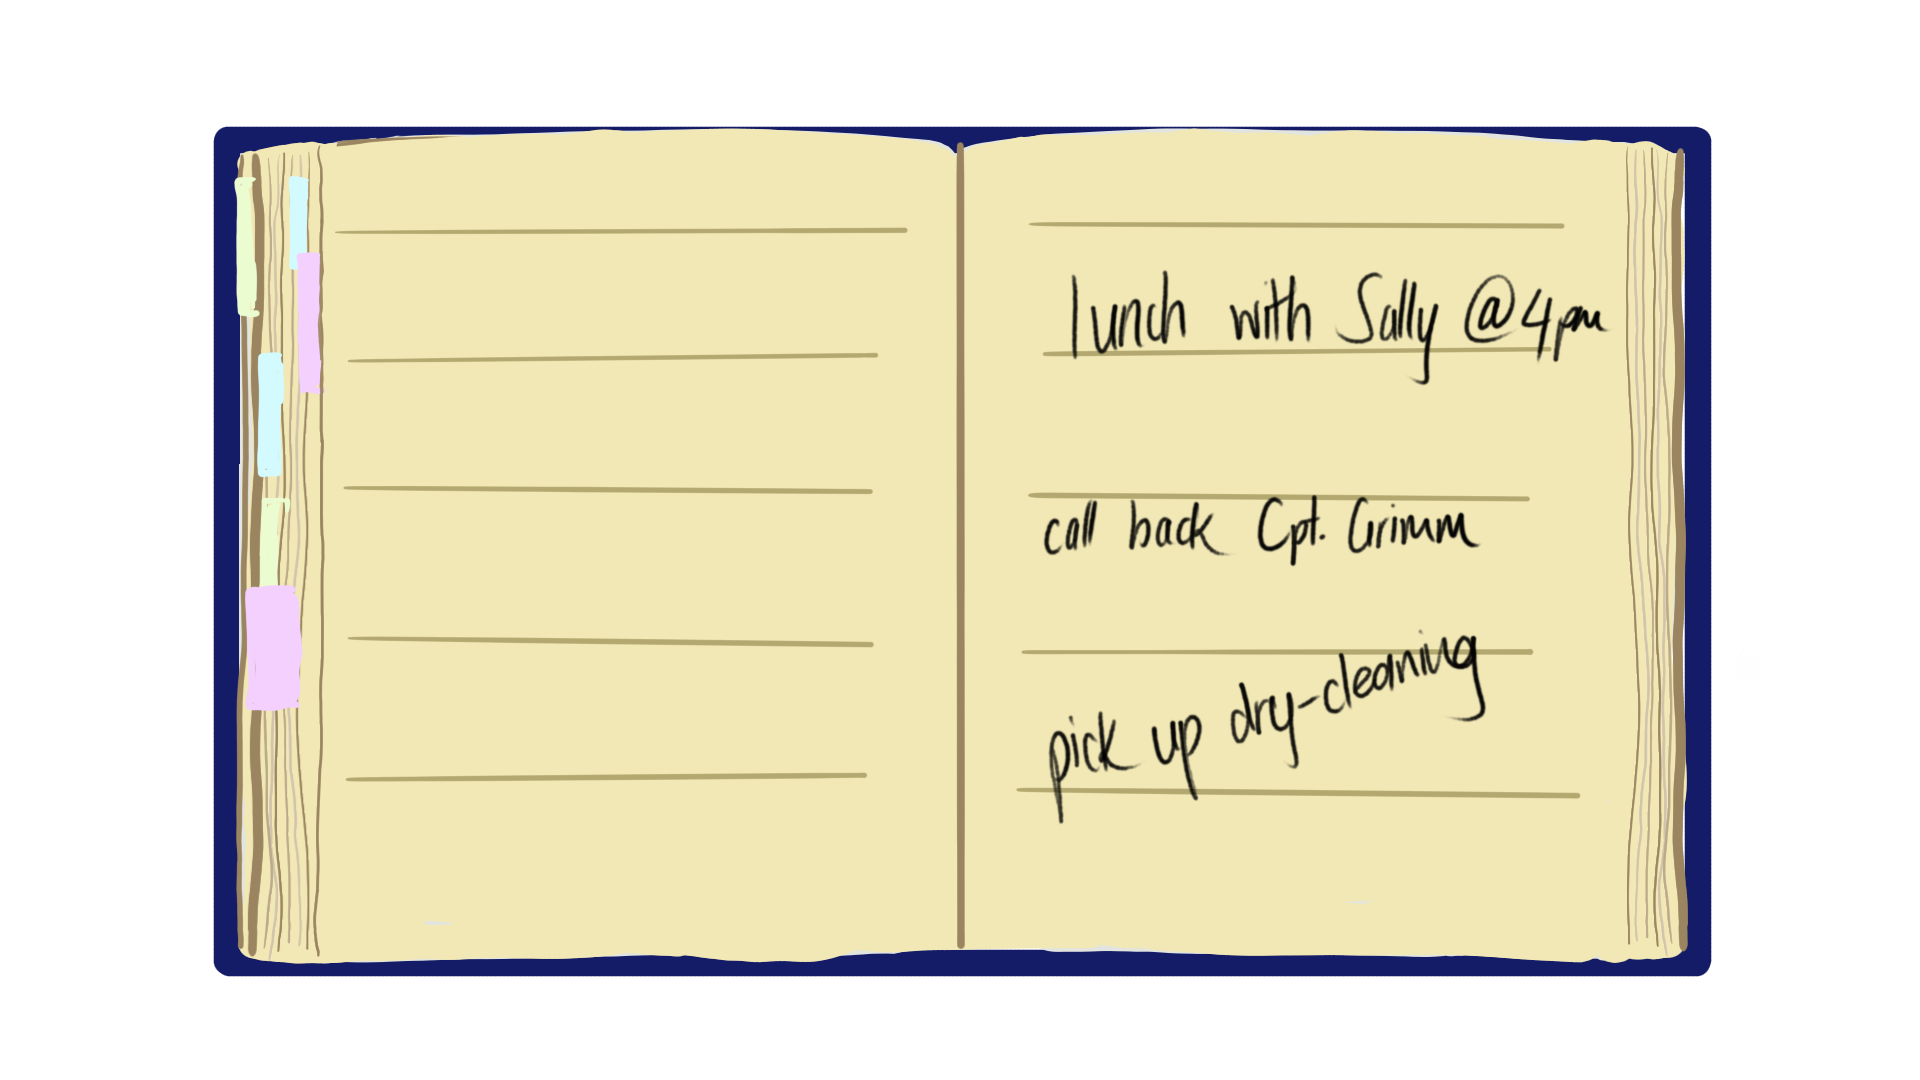 lunch with Sally @4pm
call back Cpt. Grimm
pick up dry-cleaning